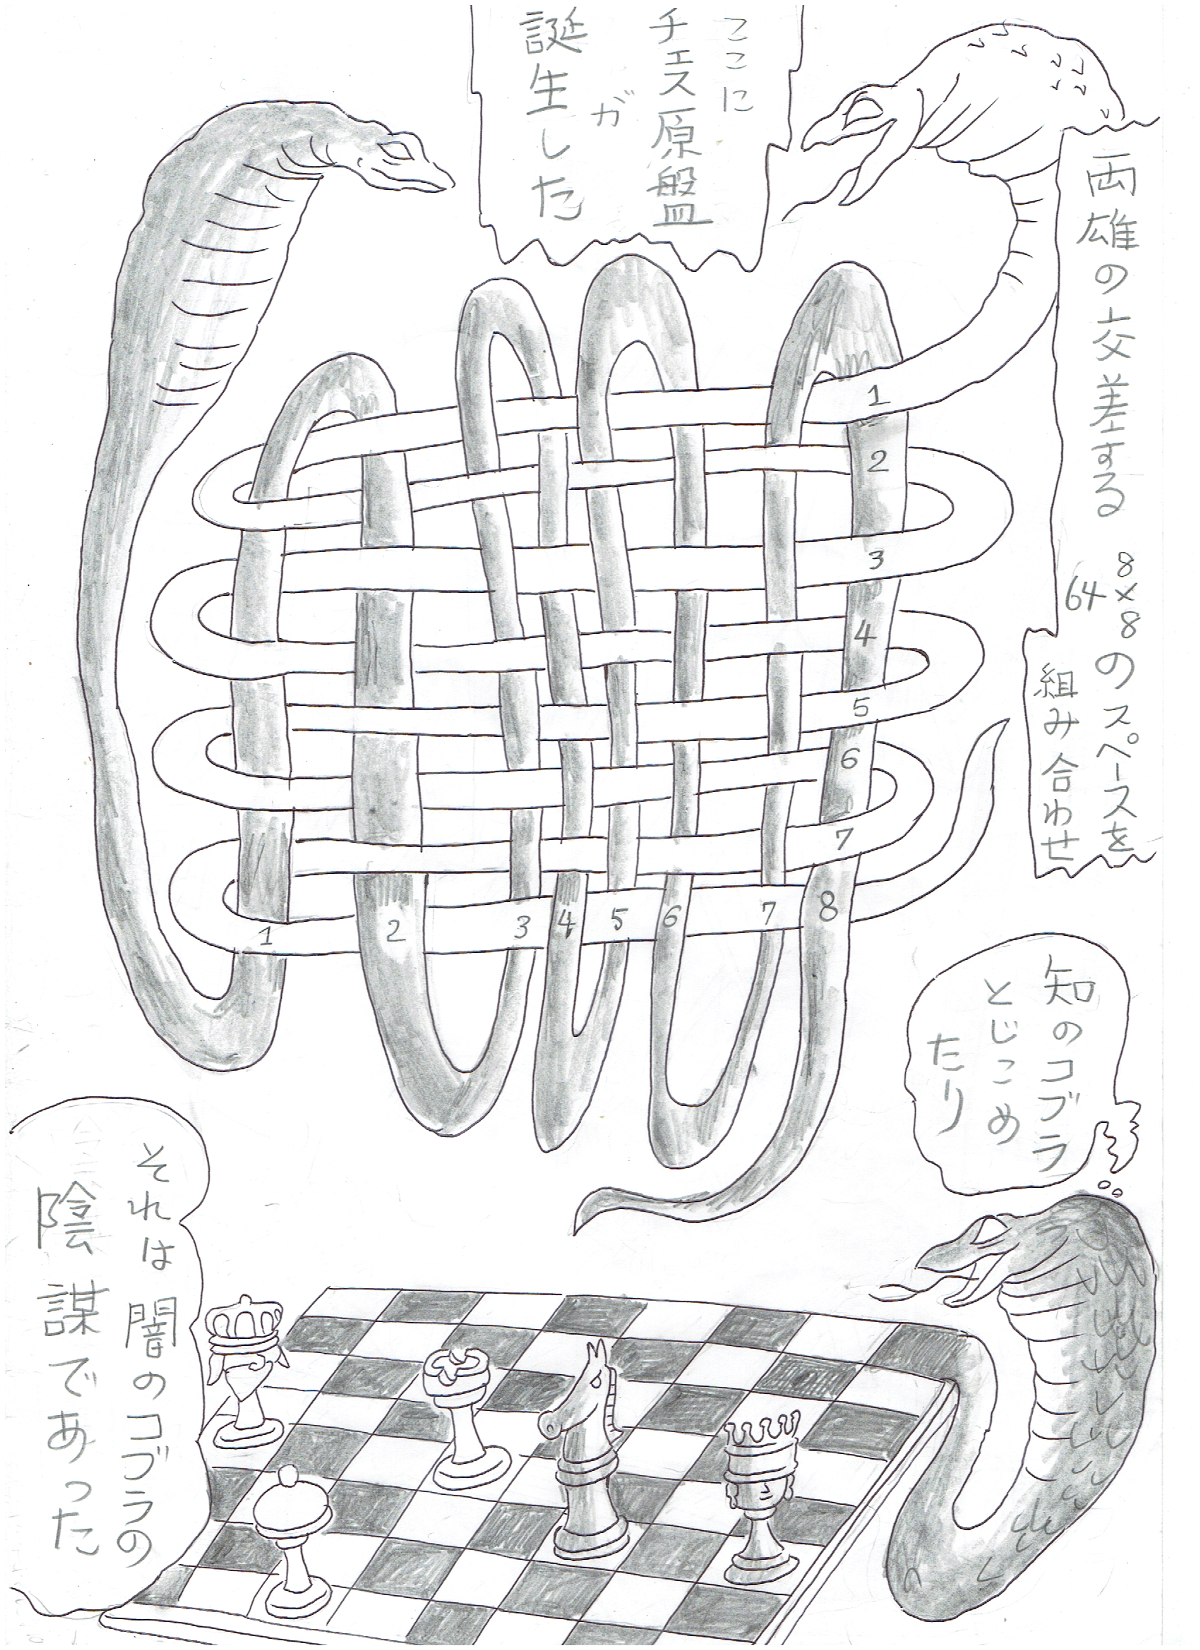 両雄の交差する
8×8のスペースを
64
組み合わせ
ここに
チェス原盤
が
誕生した
1
2
3
4
5
6
7
8
1
2
3
4
5
6
7
知のコブラ
とじこめ
たり
それは闇のコブラの
陰謀であった